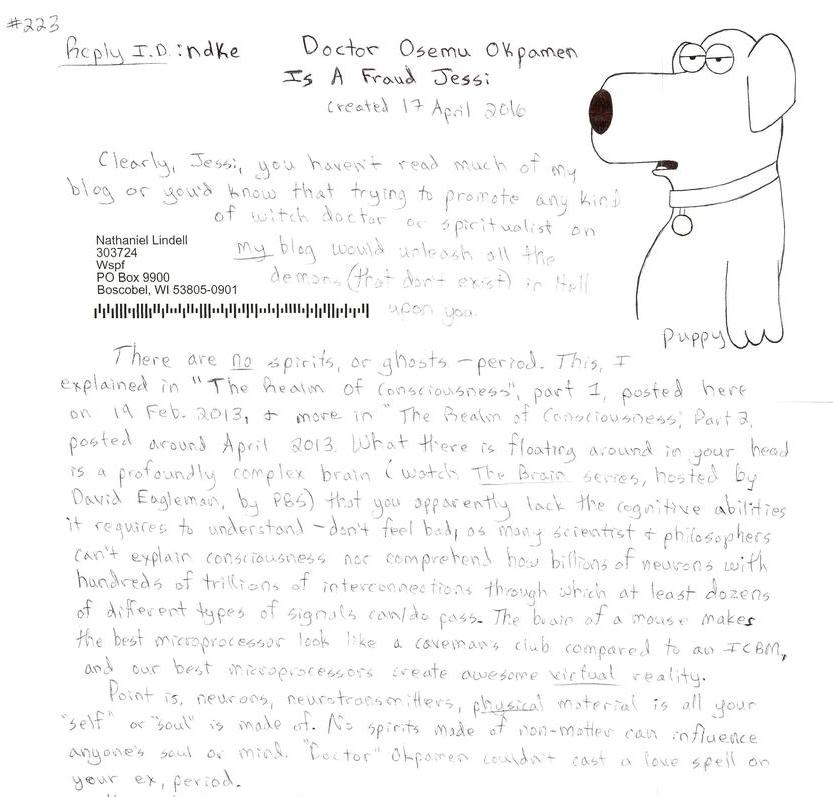 #223
Reply I.D.: ndke
Doctor Osemu Okpamen
Is A Fraud Jessi
created 17 April 2016
Clearly, Jessi, you haven't read much of my
blog or you'd know that trying to promote any kind
of witch doctor or spiritualist on
my blog would unleash all the
demons (that don't exist) in Hell
upon you.
Nathaniel Lindell
303724
Wspf
PO Box 9900
Boscobel, WI 53805-0901
Puppy
There are no spirits, or ghosts – period. This, I
explained in "The Realm of Consciousness", part 1, posted here
on 19 Feb. 2013, & more in "The Realm of Consciousness, Part 2,
posted around April 2013. What there is floating around in your head
is a profoundly complex brain (watch The Brain series, hosted by
David Eagleman, by PBS) that you apparently lack the cognitive abilities
it requires to understand – don't feel bad, as many scientist & philosophers
can't explain consciousness nor comprehend how billions of neurons with
hundreds of trillions of interconnections through which at least dozens
of different types of signals can/do pass. The brain of a mouse makes
the best microprocessor look like a caveman's club compared to an ICBM,
and our best microprocessors create awesome virtual reality.
Point is, neurons, neurotransmitters, physical material is all your
"self" or "soul" is made of. No spirits made of non-matter can influence
anyone's soul or mind. "Doctor" Okpamen couldn't cast a love spell on
your ex, period.